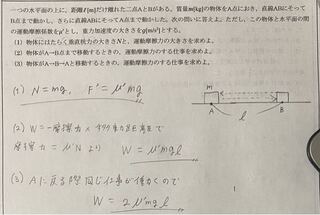 一つの水平面の上に，距離ℓ[m]だけ離れた二点AとBがある。質量m[kg]の物体をA点におき，直線ABにそって
B点まで動かし，さらに直線ABにそってA点まで動かした。次の問いに答えよ。ただし，この物体と水平面の間
の運動摩擦係数をμ'とし，重力加速度の大きさをg[m/s²]とする。
(1) 物体にはたらく垂直抗力の大きさNと，運動摩擦力の大きさを求めよ。
(2) 物体がA→B点まで移動するときの，運動摩擦力のする仕事を求めよ。
(3) 物体がA→B→Aと移動するときの，運動摩擦力のする仕事を求めよ。
(1) N = mg, F' = μ'mg
m
A
B
ℓ
(2) W = 摩擦力 ×
摩擦力 = μ'N より W = μ'mgℓ
(3) Aに戻る際同じ仕事が働くので
W = 2μ'mgℓ
1